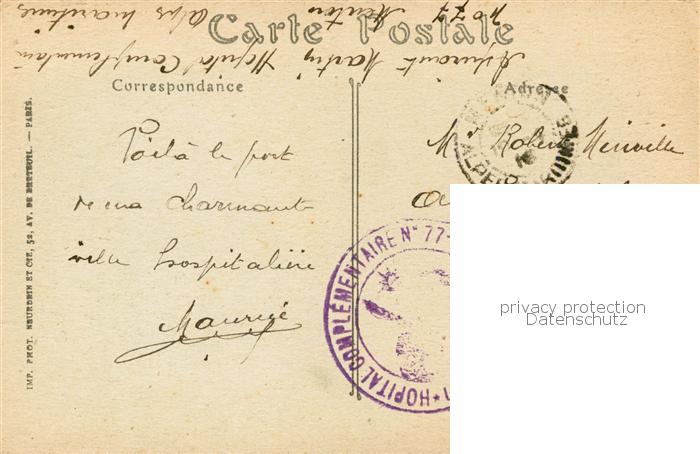 Alpes Maritimes
Menton
N° 77
Hôpital Complémentaire
Martin
Carte Postale
Correspondance
Adresse
Voilà le port
de ma charmante
ville hospitalière
Maurice
Mr Robert
HOPITAL COMPLÉMENTAIRE N° 77
IMP. PHOT. NEURDEIN ET CIE, 52, AV. DE BRETEUIL. — PARIS.
privacy protection
Datenschutz